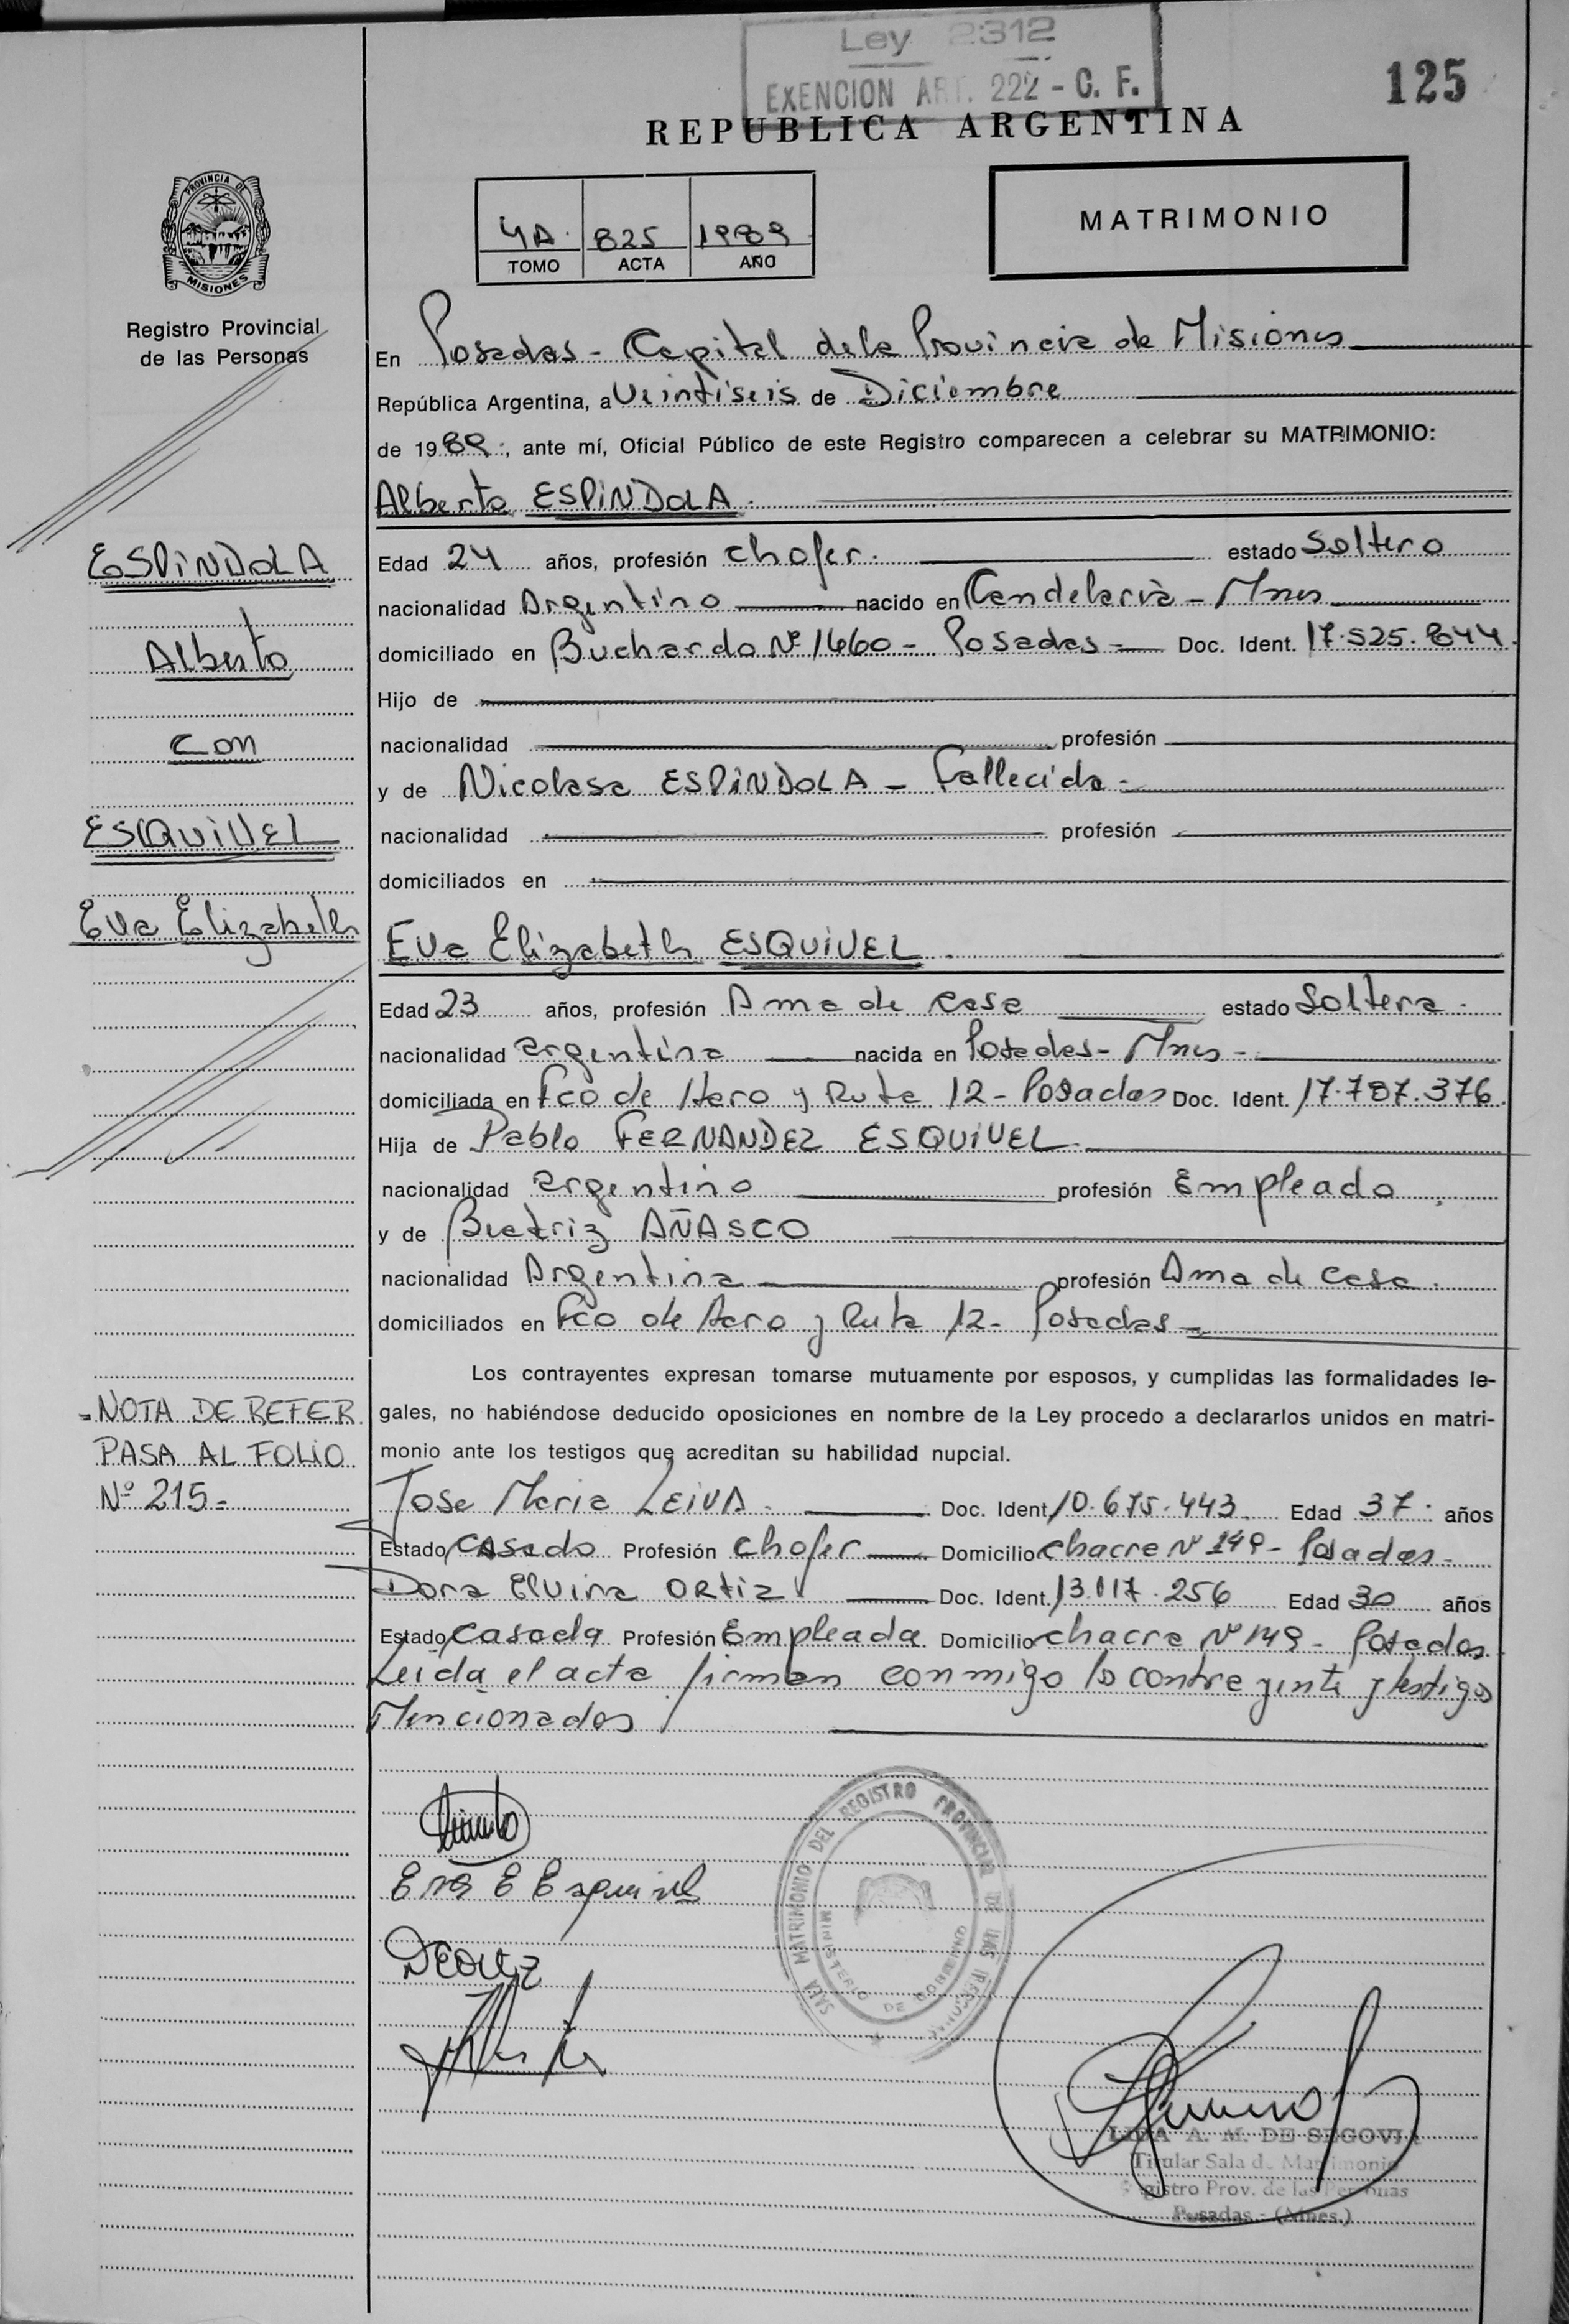 Ley 2312
EXENCION ART. 222 - C. F.
125
REPUBLICA ARGENTINA
PROVINCIA DE
MISIONES
Registro Provincial
de las Personas
4A. 825 1989
TOMO ACTA AÑO
MATRIMONIO
En Posadas - Capital de la Provincia de Misiones
República Argentina, a Veintiseis de Diciembre
de 1989, ante mí, Oficial Público de este Registro comparecen a celebrar su MATRIMONIO:
Alberto ESPINDOLA.
ESPINDOLA
Alberto
con
ESQUIVEL
Eva Elizabeth
Edad 24 años, profesión chofer. estado Soltero
nacionalidad Argentino nacido en Candelaria - Mnes
domiciliado en Buchardo Nº 1460 - Posadas - Doc. Ident. 17.525.844.
Hijo de
nacionalidad profesión
y de Nicolasa ESPINDOLA - Fallecida -
nacionalidad profesión
domiciliados en
Eva Elizabeth ESQUIVEL.
Edad 23 años, profesión Ama de casa estado Soltera.
nacionalidad argentina nacida en Posadas - Mnes -
domiciliada en Fco de Haro y Ruta 12 - Posadas Doc. Ident. 17.787.376.
Hija de Pablo FERNANDEZ ESQUIVEL.
nacionalidad argentino profesión Empleado
y de Beatriz AÑASCO
nacionalidad Argentina profesión Ama de casa.
domiciliados en Fco de Haro y Ruta 12 - Posadas -
Los contrayentes expresan tomarse mutuamente por esposos, y cumplidas las formalidades le-
gales, no habiéndose deducido oposiciones en nombre de la Ley procedo a declararlos unidos en matri-
monio ante los testigos que acreditan su habilidad nupcial.
- NOTA DE REFER
PASA AL FOLIO
Nº 215 -
Jose Maria LEIVA. Doc. Ident. 10.675.443. Edad 37. años
Estado Casado Profesión chofer Domicilio chacra Nº 149 - Posadas -
Dora Elvira ORTIZ Doc. Ident. 13.117.256 Edad 30 años
Estado Casada Profesión Empleada Domicilio chacra Nº 149 - Posadas
Leida el acta firman conmigo los contrayente y testigos
Mencionados
Eva E Esquivel
SALA MATRIMONIO DEL REGISTRO PROVINCIAL DE LAS PERSONAS
MINISTERIO DE GOBIERNO
A. M. DE SEGOVIA
Titular Sala de Matrimonio
Registro Prov. de las Personas
Posadas - (Mnes.)